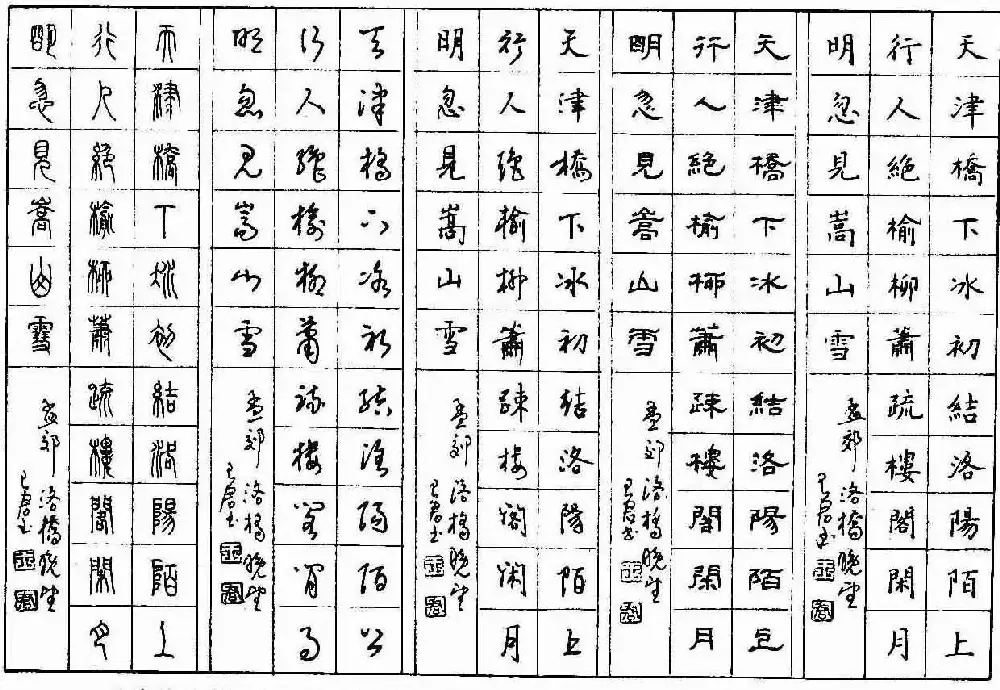 天津橋下冰初結洛陽陌上
行人絕榆柳蕭疏樓閣閑月
明忽見嵩山雪
孟郊 洛橋晚望
天津橋下冰初結洛陽陌上
行人絕榆柳蕭疎樓閣閑月
明忽見嵩山雪
孟郊 洛橋晚望
天津橋下冰初結洛陽陌上
行人絕榆柳蕭疎樓閣閑月
明忽見嵩山雪
孟郊 洛橋晚望
天津橋下冰初結洛陽陌上
行人絕榆柳蕭疏樓閣閑月
明忽見嵩山雪
孟郊 洛橋晚望
天津橋下冰初結洛陽陌上
行人絕榆柳蕭疏樓閣閑月
明忽見嵩山雪
孟郊 洛橋晚望